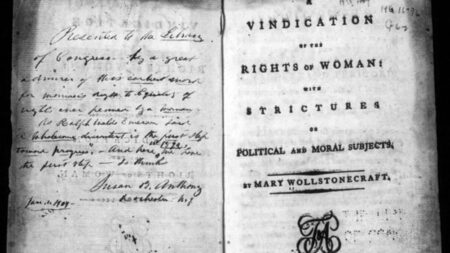 Presented to the Library
of Congress by a great
admirer of this earliest work
for woman's right to Equality of
rights ever penned by a woman
As Ralph Waldo Emerson said
A wholesome discontent is the first step
toward progress" And here in 1792 we have
the first step - so thinks
Susan B. Anthony
Jan. 1, 1904. Rochester N.Y.
A
VINDICATION
OF THE
RIGHTS OF WOMAN:
WITH
STRICTURES
ON
POLITICAL AND MORAL SUBJECTS,
BY MARY WOLLSTONECRAFT,